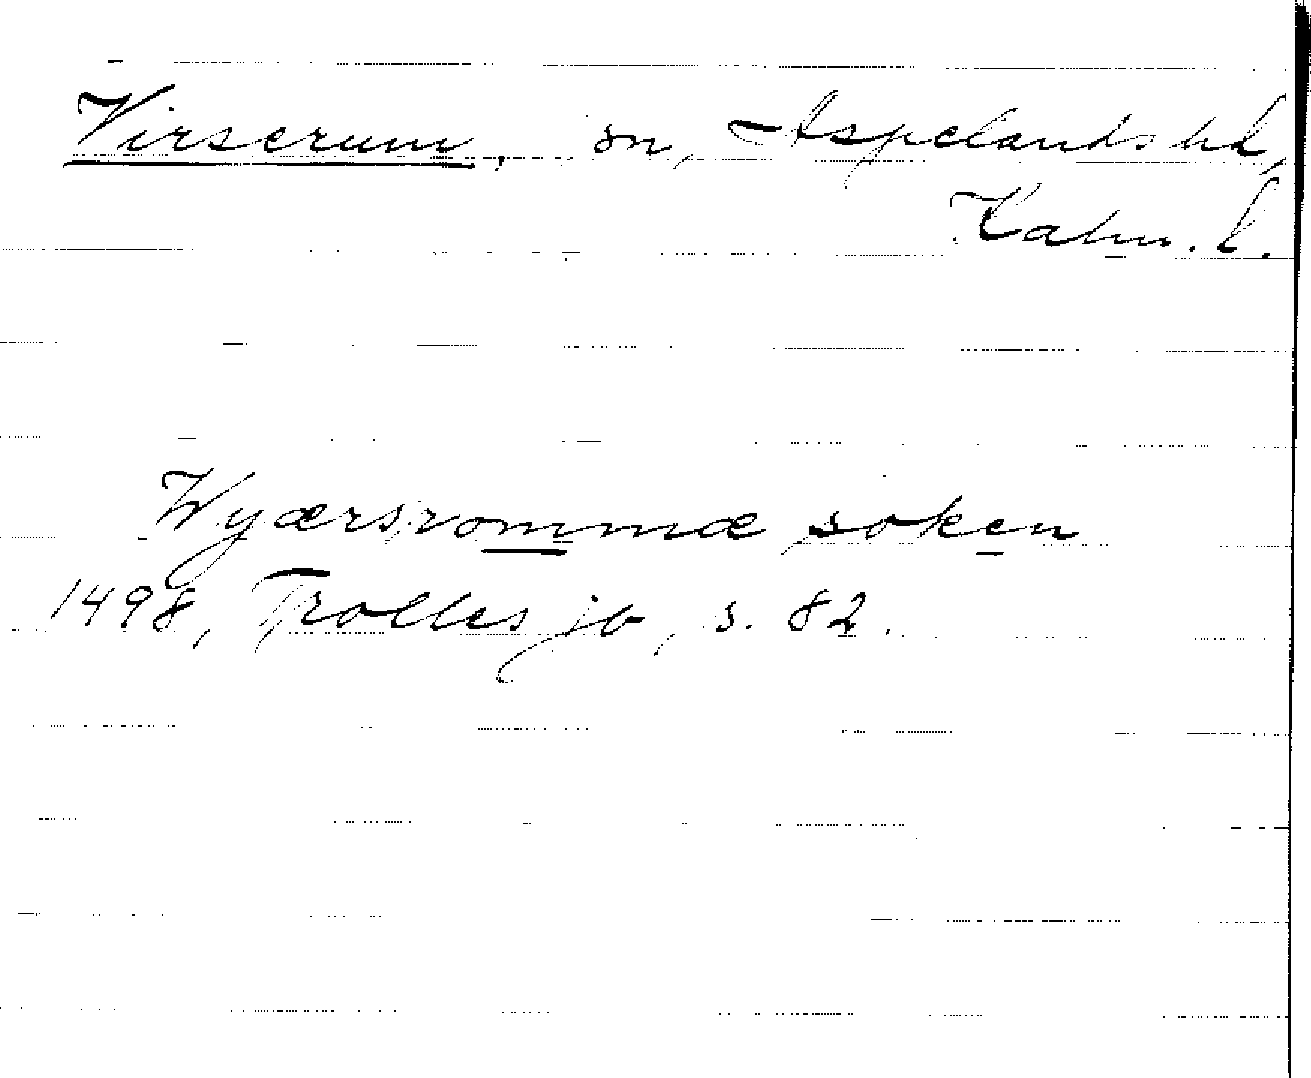 Virserum, sn, Aspelands hd,
Kalm. l.
Wyærsrommæ soken
1498, Trolles jb, s. 82.